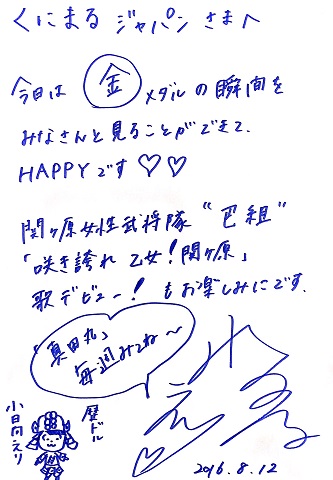 くにまるジャパンさまへ
今日は金メダルの瞬間を
みなさんと見ることができて、
HAPPYです♡♡
関ヶ原女性武将隊“巴組”
「咲き誇れ乙女!関ヶ原」
歌デビュー!もお楽しみにです。
「真田丸」
毎週みてね〜
歴ドル
小日向えり
2016.8.12